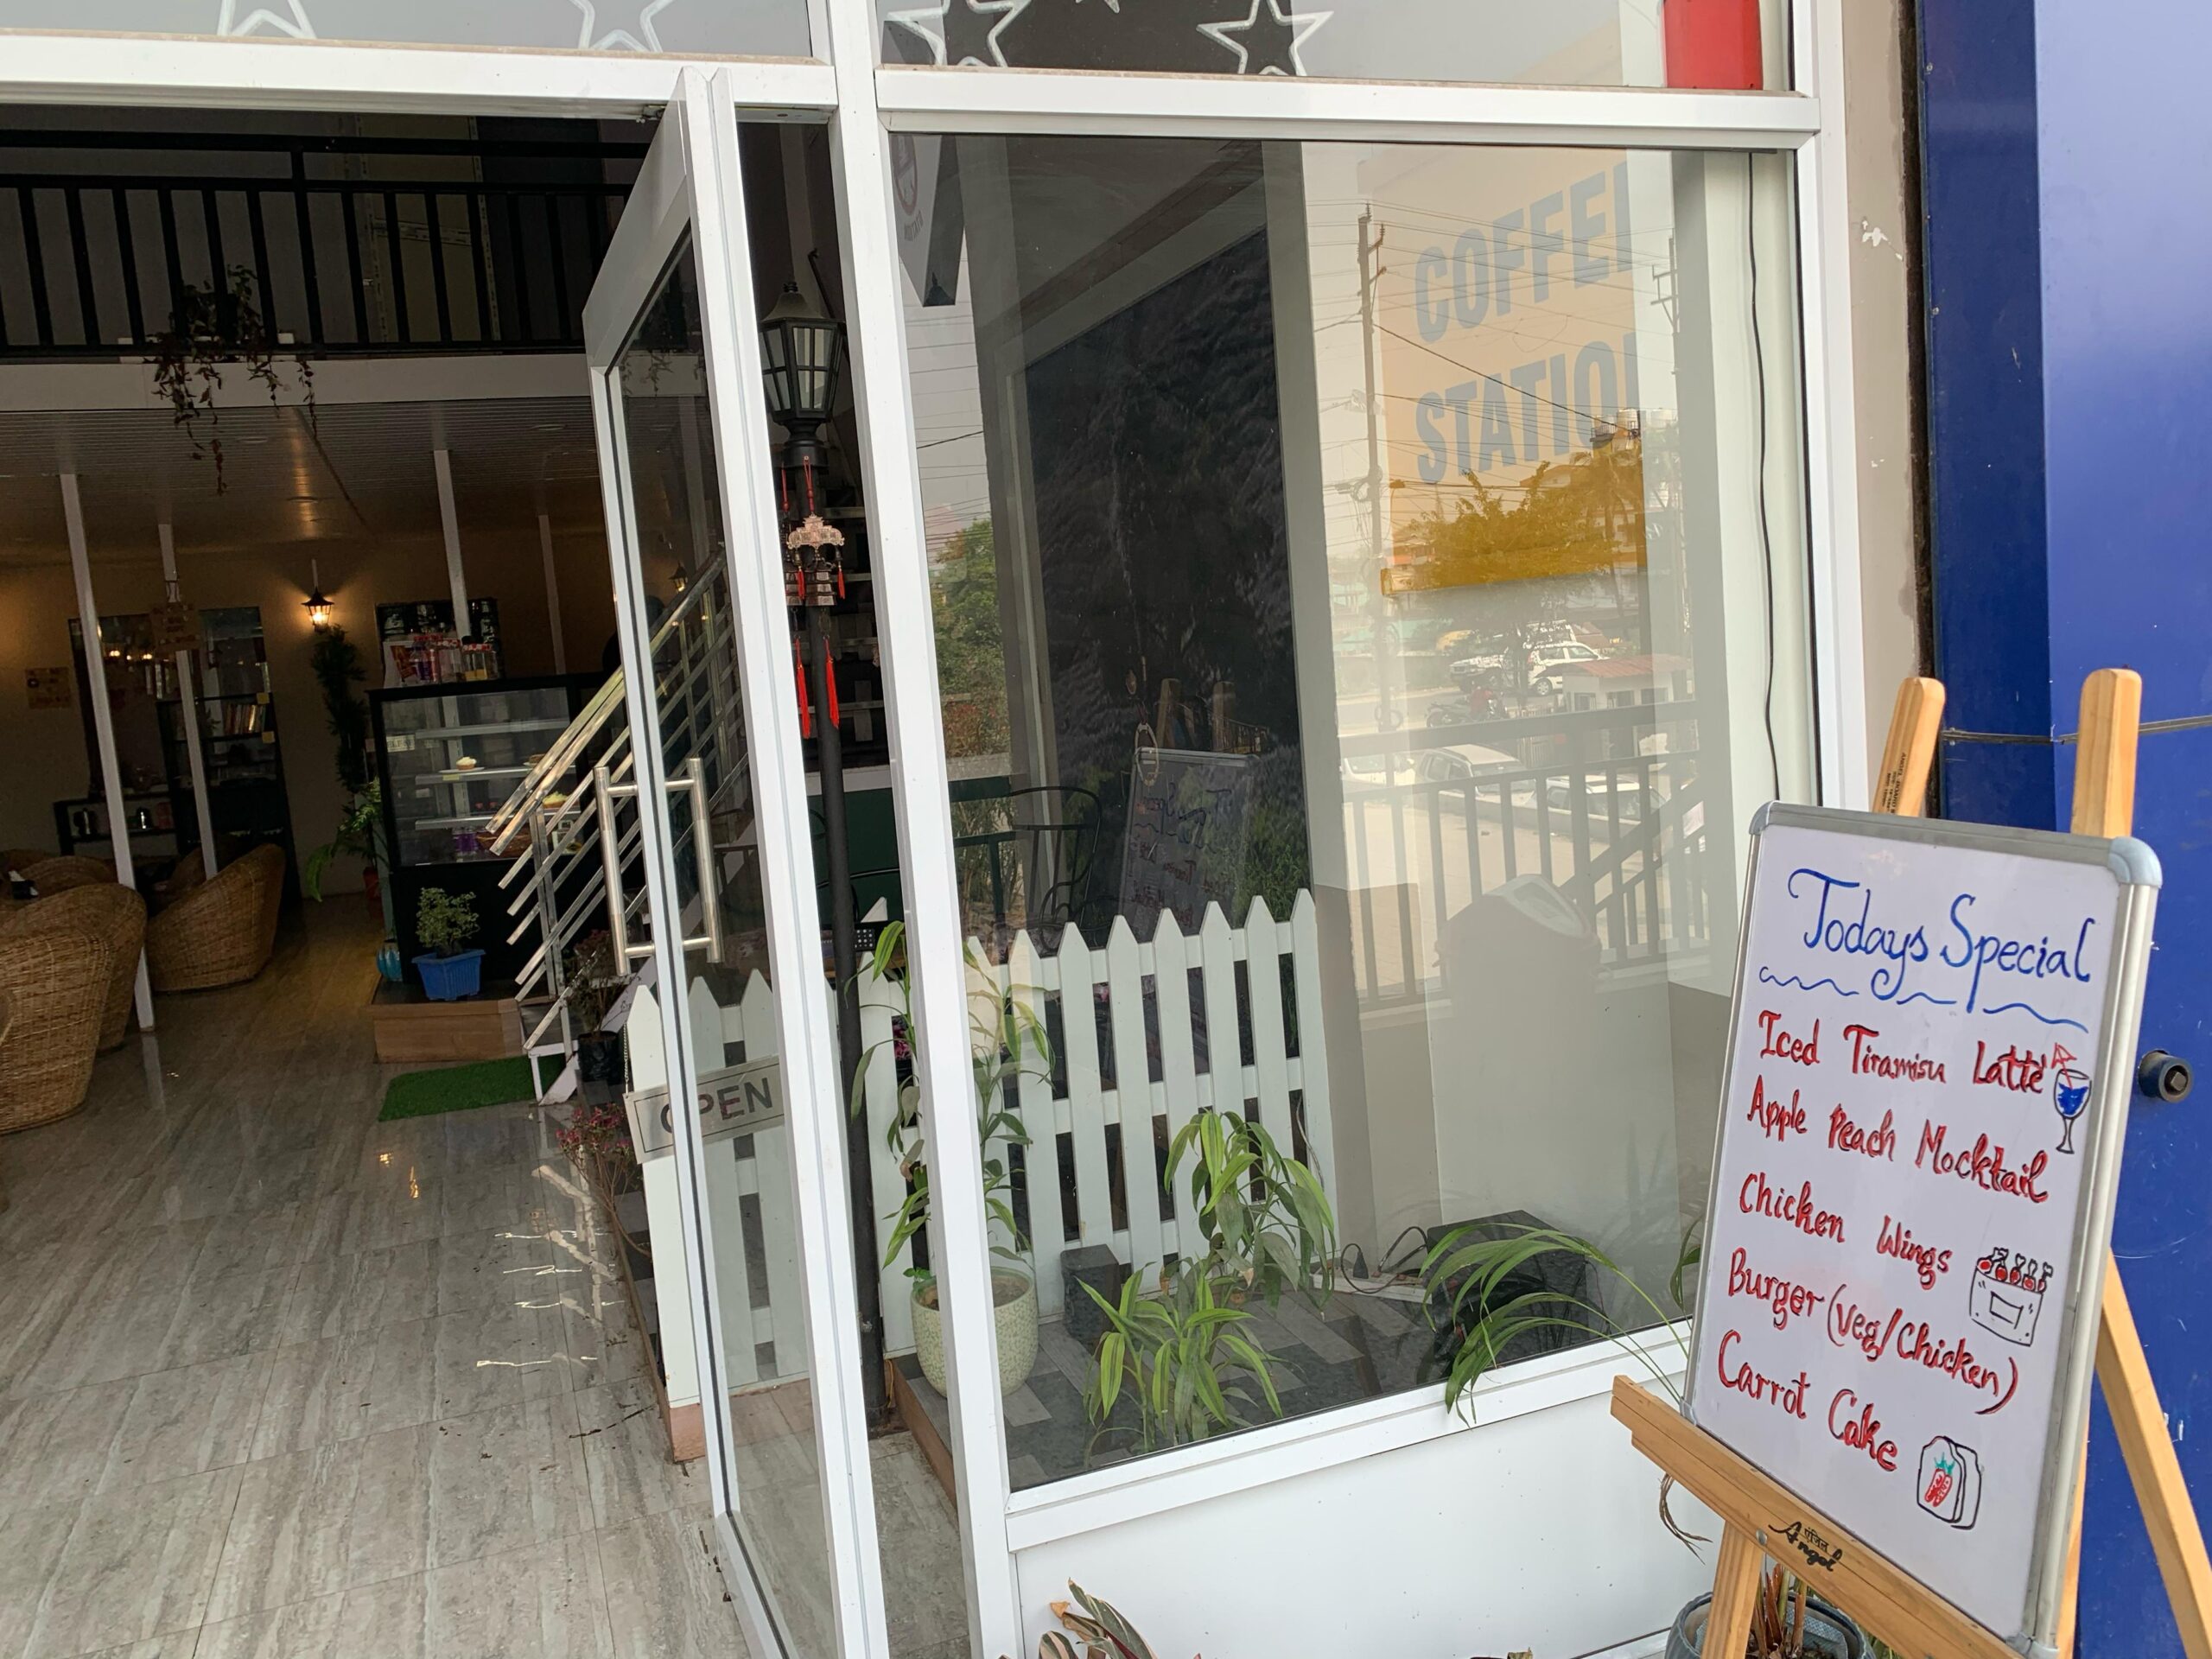 COFFEE
STATION
OPEN
Todays Special
Iced Tiramisu Latte
Apple Peach Mocktail
Chicken Wings
Burger (Veg/Chicken)
Carrot Cake
एंजिल
Angel